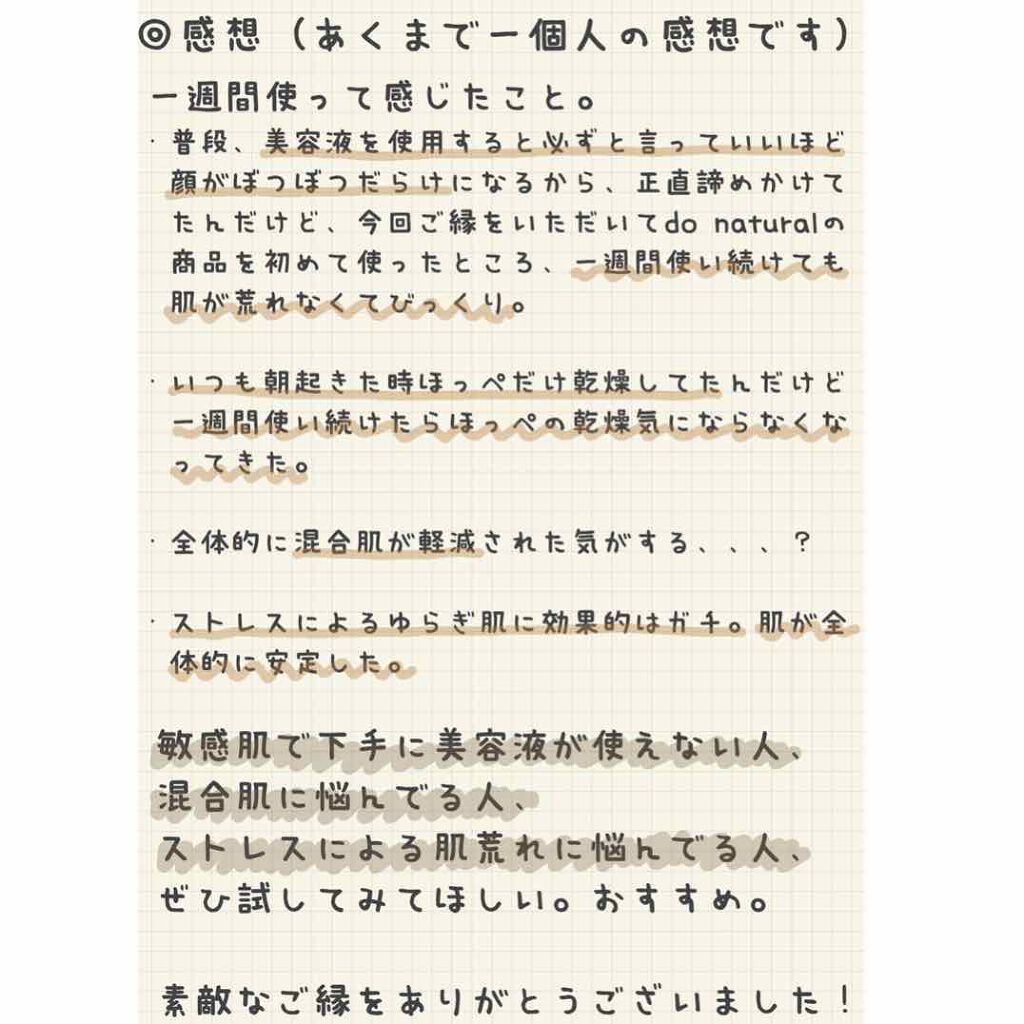 ◎感想（あくまで一個人の感想です）
一週間使って感じたこと。
・普段、美容液を使用すると必ずと言っていいほど
顔がぼつぼつだらけになるから、正直諦めかけて
たんだけど、今回ご縁をいただいてdo naturalの
商品を初めて使ったところ、一週間使い続けても
肌が荒れなくてびっくり。
・いつも朝起きた時ほっぺだけ乾燥してたんだけど
一週間使い続けたらほっぺの乾燥気にならなくな
ってきた。
・全体的に混合肌が軽減された気がする、、、？
・ストレスによるゆらぎ肌に効果的はガチ。肌が全
体的に安定した。
敏感肌で下手に美容液が使えない人、
混合肌に悩んでる人、
ストレスによる肌荒れに悩んでる人、
ぜひ試してみてほしい。おすすめ。
素敵なご縁をありがとうございました！